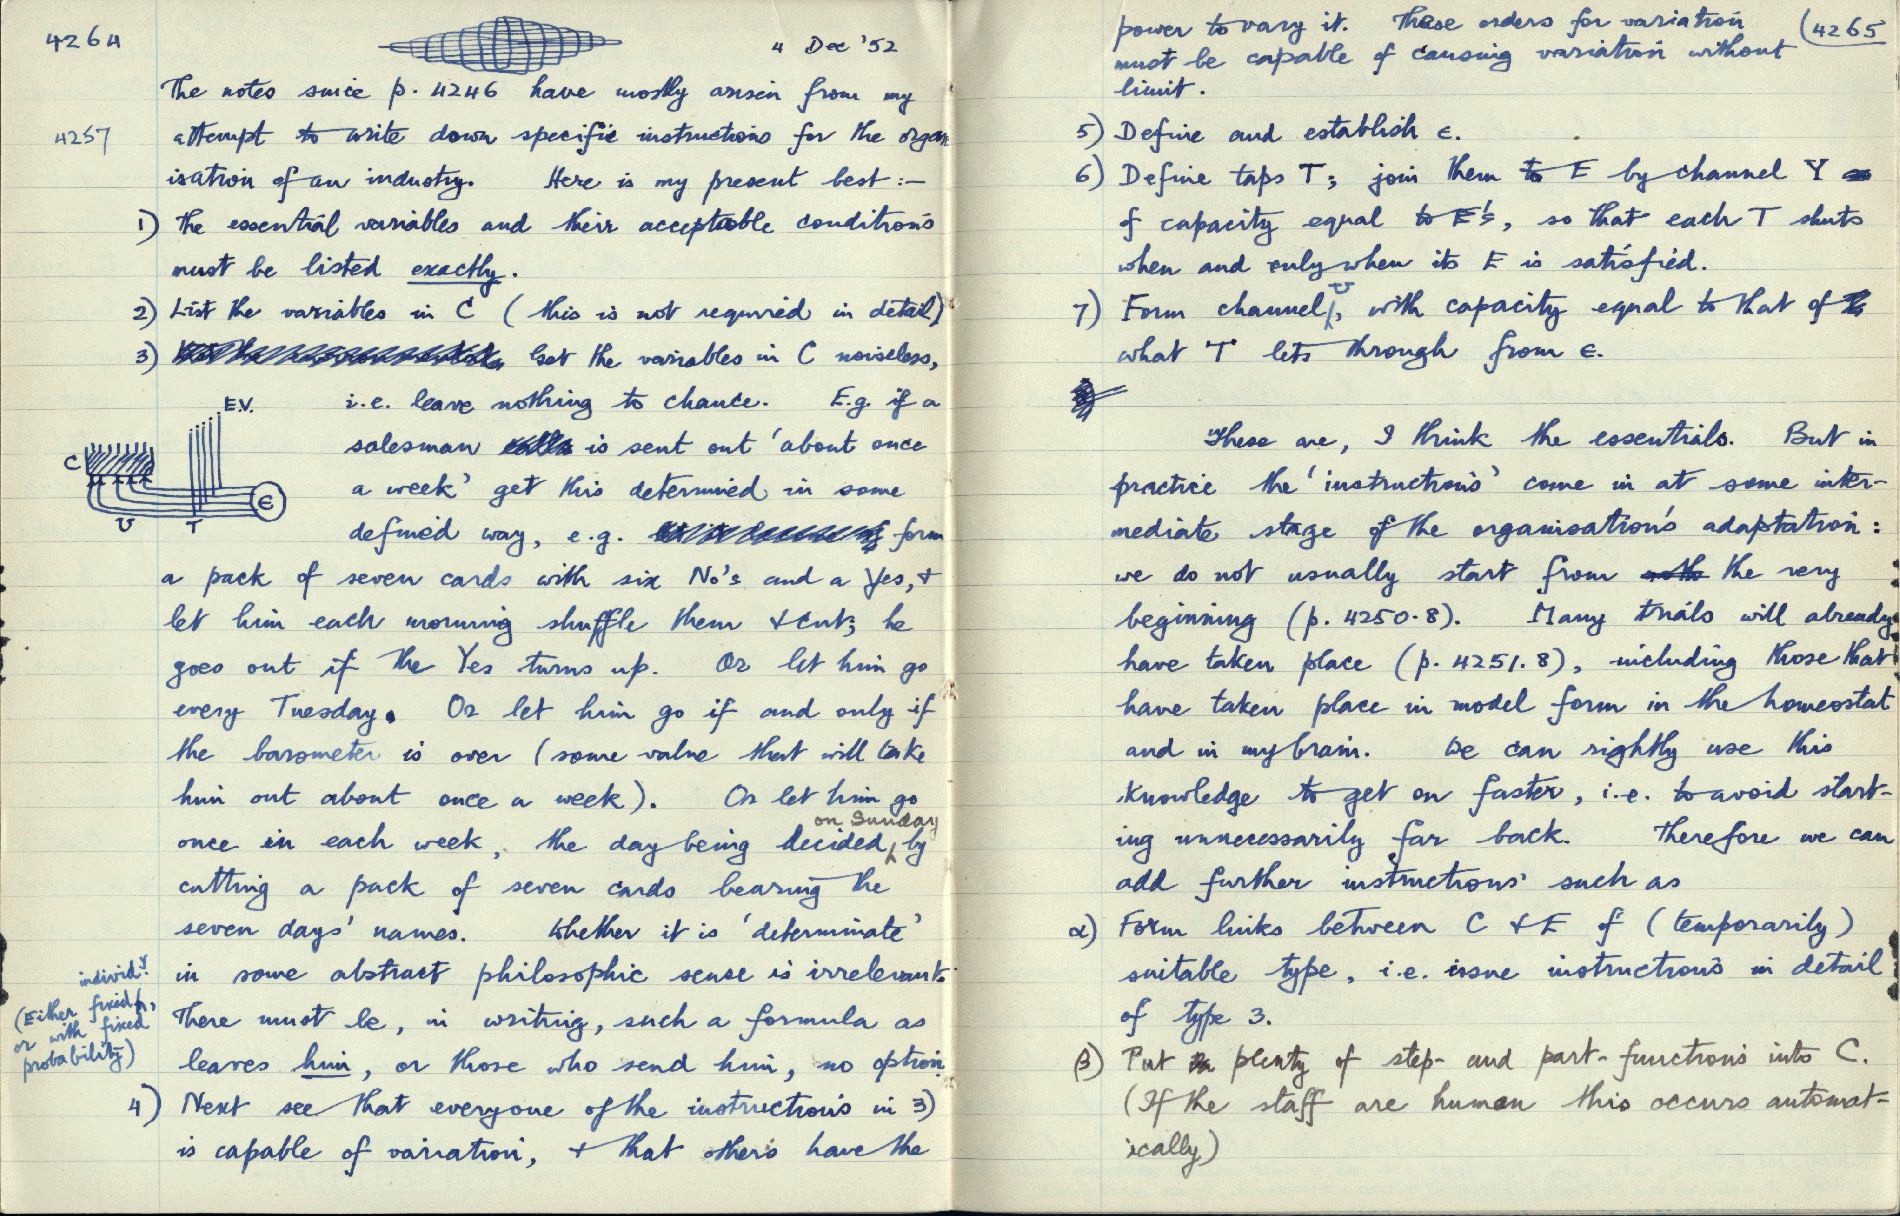 4264
4 Dec '52
The notes since p. 4246 have mostly arisen from my
4257
attempt to write down specific instructions for the organ
isation of an industry. Here is my present best :—
1) The essential variables and their acceptable conditions
must be listed exactly.
2) List the variables in C (this is not required in detail)
3) Get the variables in C noiseless,
i.e. leave nothing to chance. E.g. if a
salesman is sent out 'about once
a week' get this determined in some
defined way, e.g. form
E.V.
C
ϵ
U
T
a pack of seven cards with six No's and a Yes, +
let him each morning shuffle them + cut; he
goes out if the Yes turns up. Or let him go
every Tuesday. Or let him go if and only if
the barometer is over (some value that will take
him out about once a week). Or let him go
once in each week, the day being decided on Sunday by
cutting a pack of seven cards bearing the
seven days' names. Whether it is 'determinate'
in some abstract philosophic sense is irrelevant.
There must be, in writing, such a formula as
leaves him, or those who send him, no option
(Either fixed individ.y,
or with fixed
probability)
4) Next see that everyone of the instructions in 3)
is capable of variation, + that others have the
4265
power to vary it. These orders for variation
must be capable of causing variation without
limit.
5) Define and establish ϵ.
6) Define taps T; join them to E by channel Y
of capacity equal to E's, so that each T shuts
when and only when its E is satisfied.
7) Form channel U, with capacity equal to that of
what T lets through from ϵ.
These are, I think the essentials. But in
practice the 'instructions' come in at some inter-
mediate stage of the organisation's adaptation:
we do not usually start from the very
beginning (p. 4250.8). Many trials will already
have taken place (p. 4251.8), including those that
have taken place in model form in the homeostat
and in my brain. We can rightly use this
knowledge to get on faster, i.e. to avoid start-
ing unnecessarily far back. Therefore we can
add further instructions such as
α) Form links between C + E of (temporarily)
suitable type, i.e. issue instructions in detail
of type 3.
β) Put plenty of step- and part-functions into C.
(If the staff are human this occurs automat-
ically)